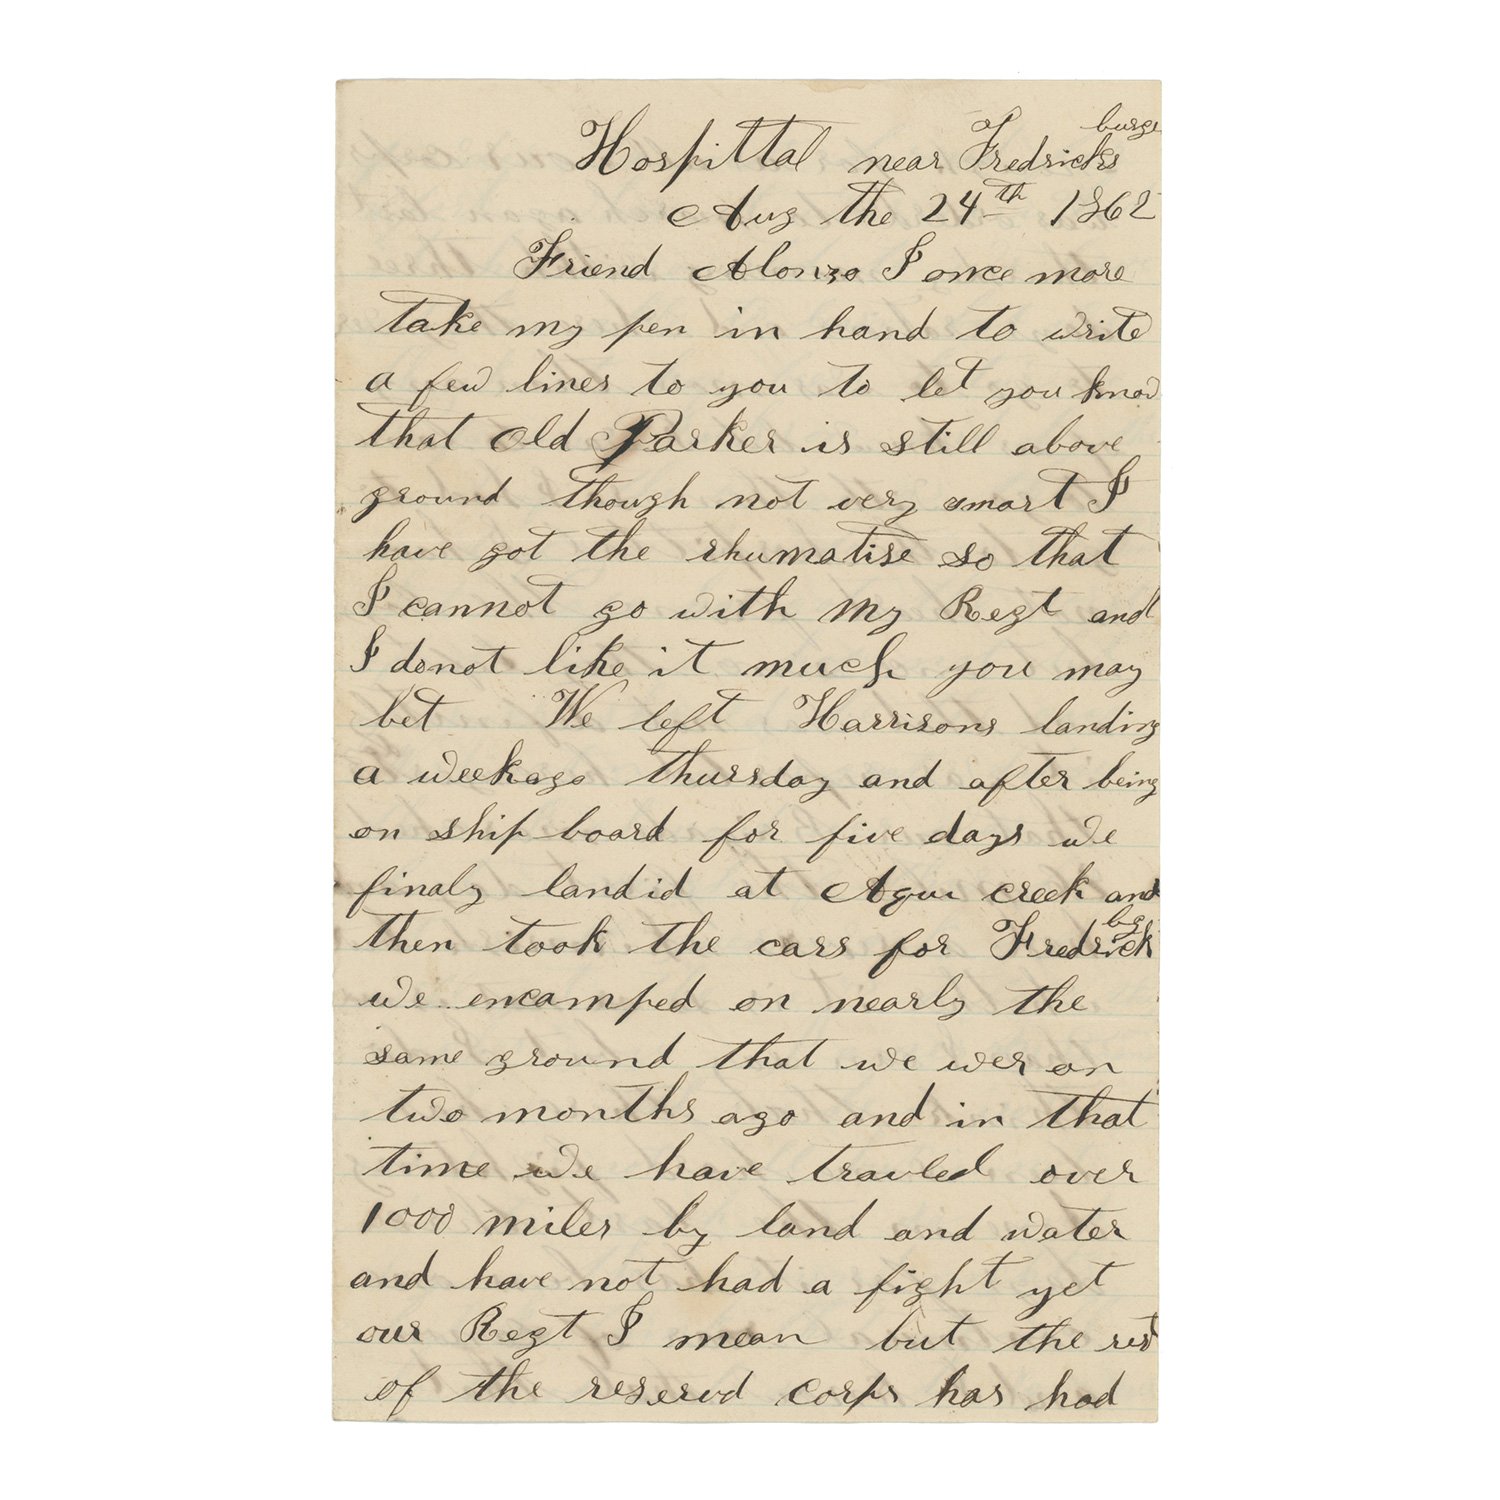 Hospittal near Fredricksburge
Aug the 24th 1862
Friend Alonzo I once more
take my pen in hand to write
a few lines to you to let you know
that old Parker is still above
ground though not very smart I
have got the rhumatise so that
I cannot go with my Regt and
I donot like it much you may
bet We left Harrisons landing
a week ago thursday and after being
on ship board for five days we
finaly landid at Aqui creek and
then took the cars for Fredrickbg
we encamped on nearly the
same ground that we wer on
two months ago and in that
time we have travled over
1000 miles by land and water
and have not had a fight yet
our Regt I mean but the rest
of the reservd corps has had